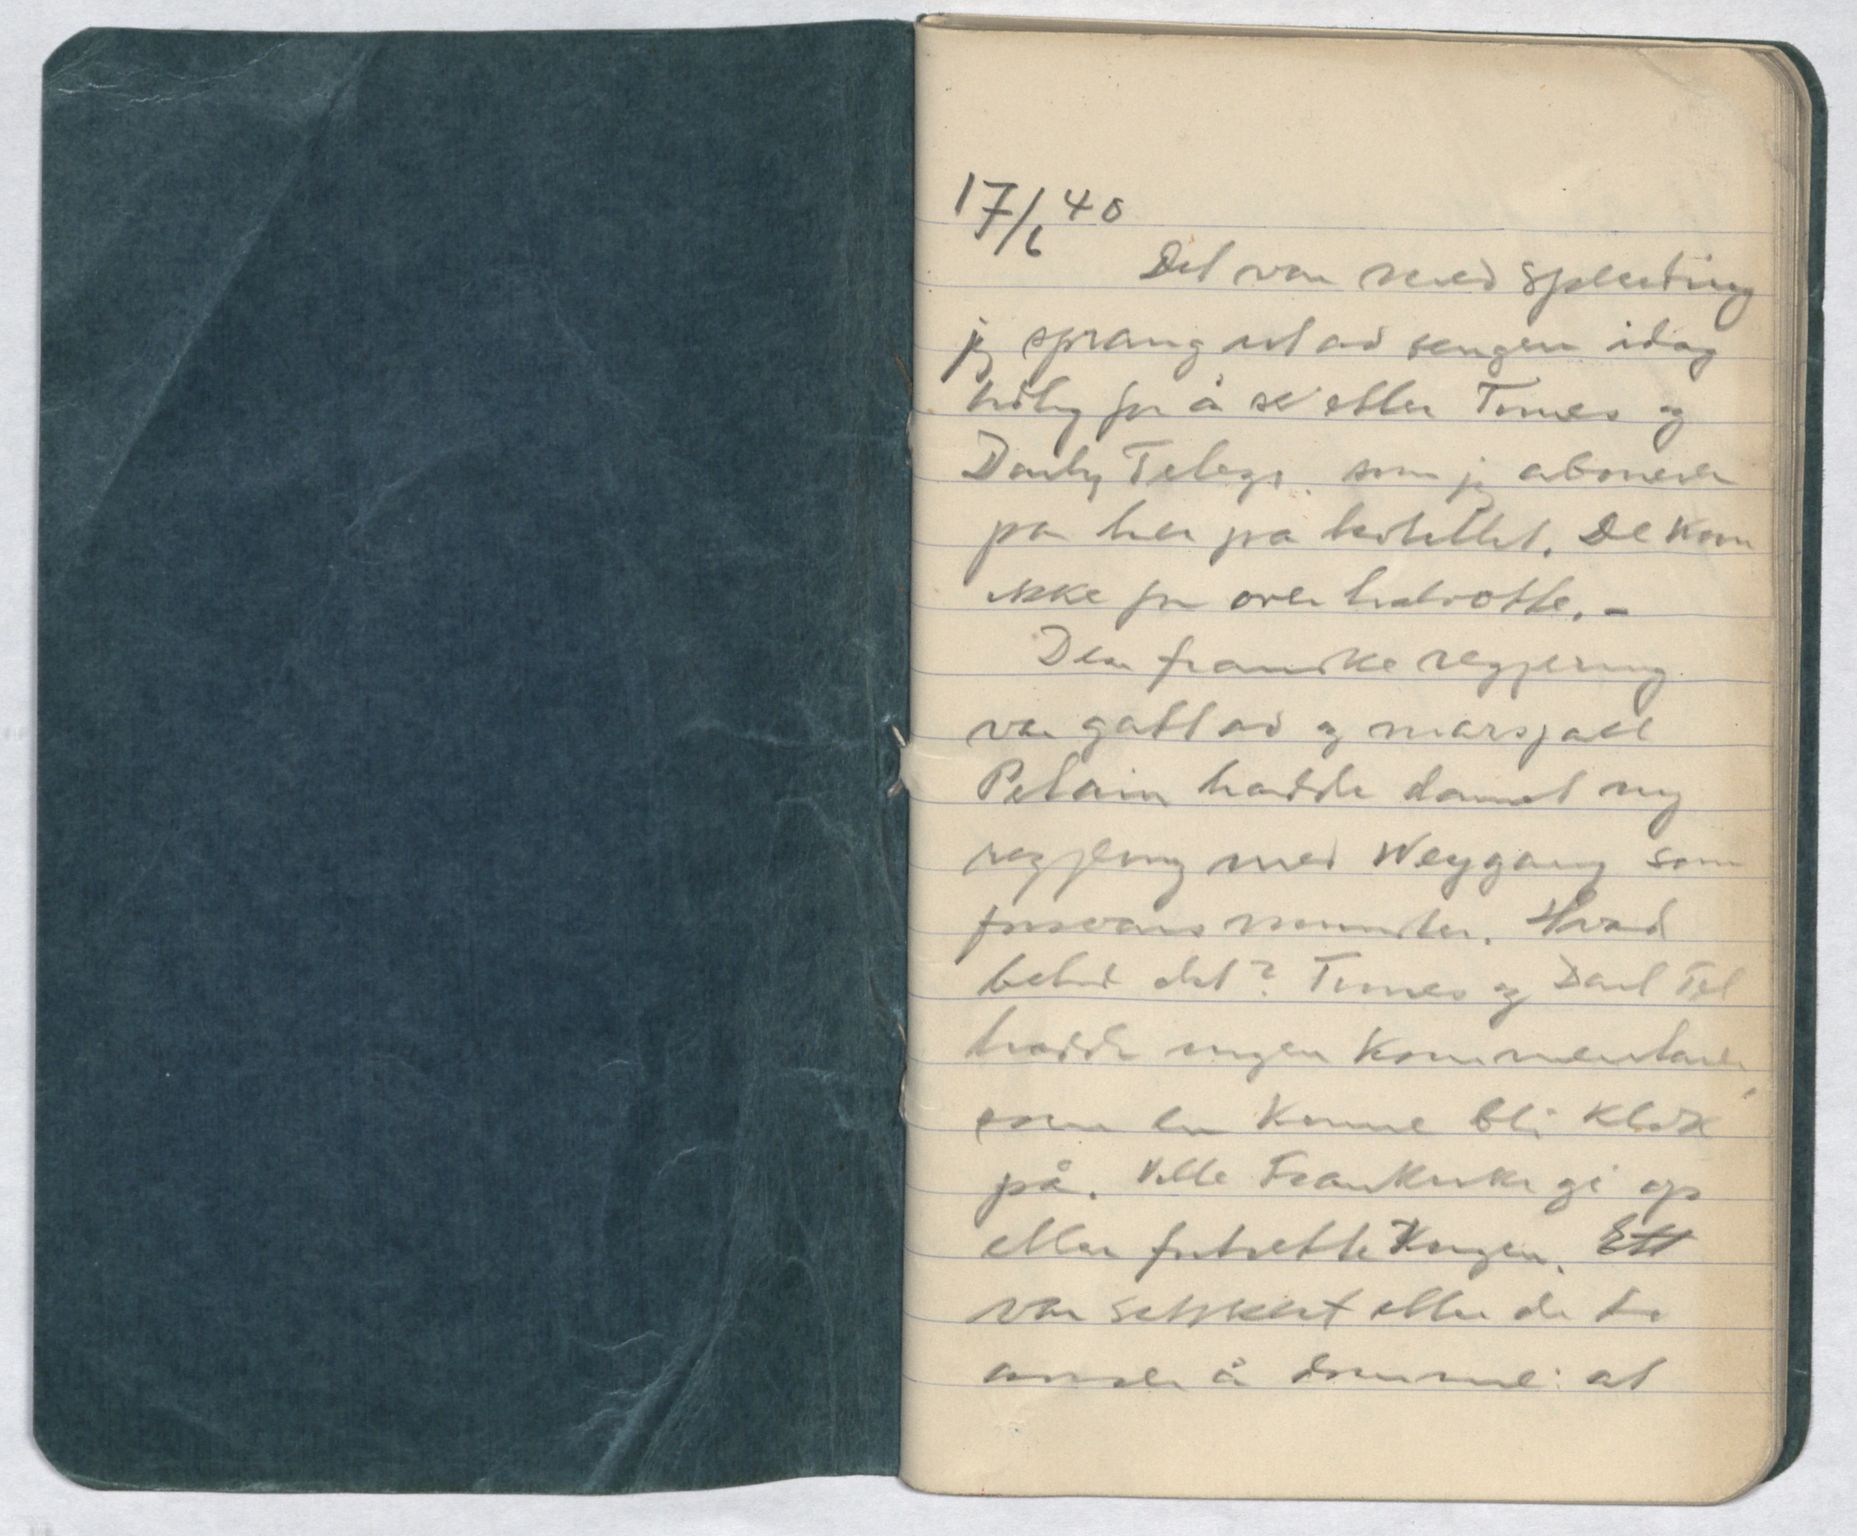 17/6 40
Det var med spenting
jeg sprang ut av sengen idag
tidlig for å se etter Times og
Daily Telegr. som jeg abonerer
på her på hotellet. De kom
ikke før over halvotte. -
Den franske regjering
var gått av og marsjall
Petain hadde dannet ny
regjering med Weygang som
forsvarsminister. Hvad
betød det? Times og Dail Tel
hadde ingen kommentarer,
som en kunne bli klok
på. Vilde Frankrike gi op
eller fortsette Krigen. Ett
var sikkert efter de to
å dømme: at